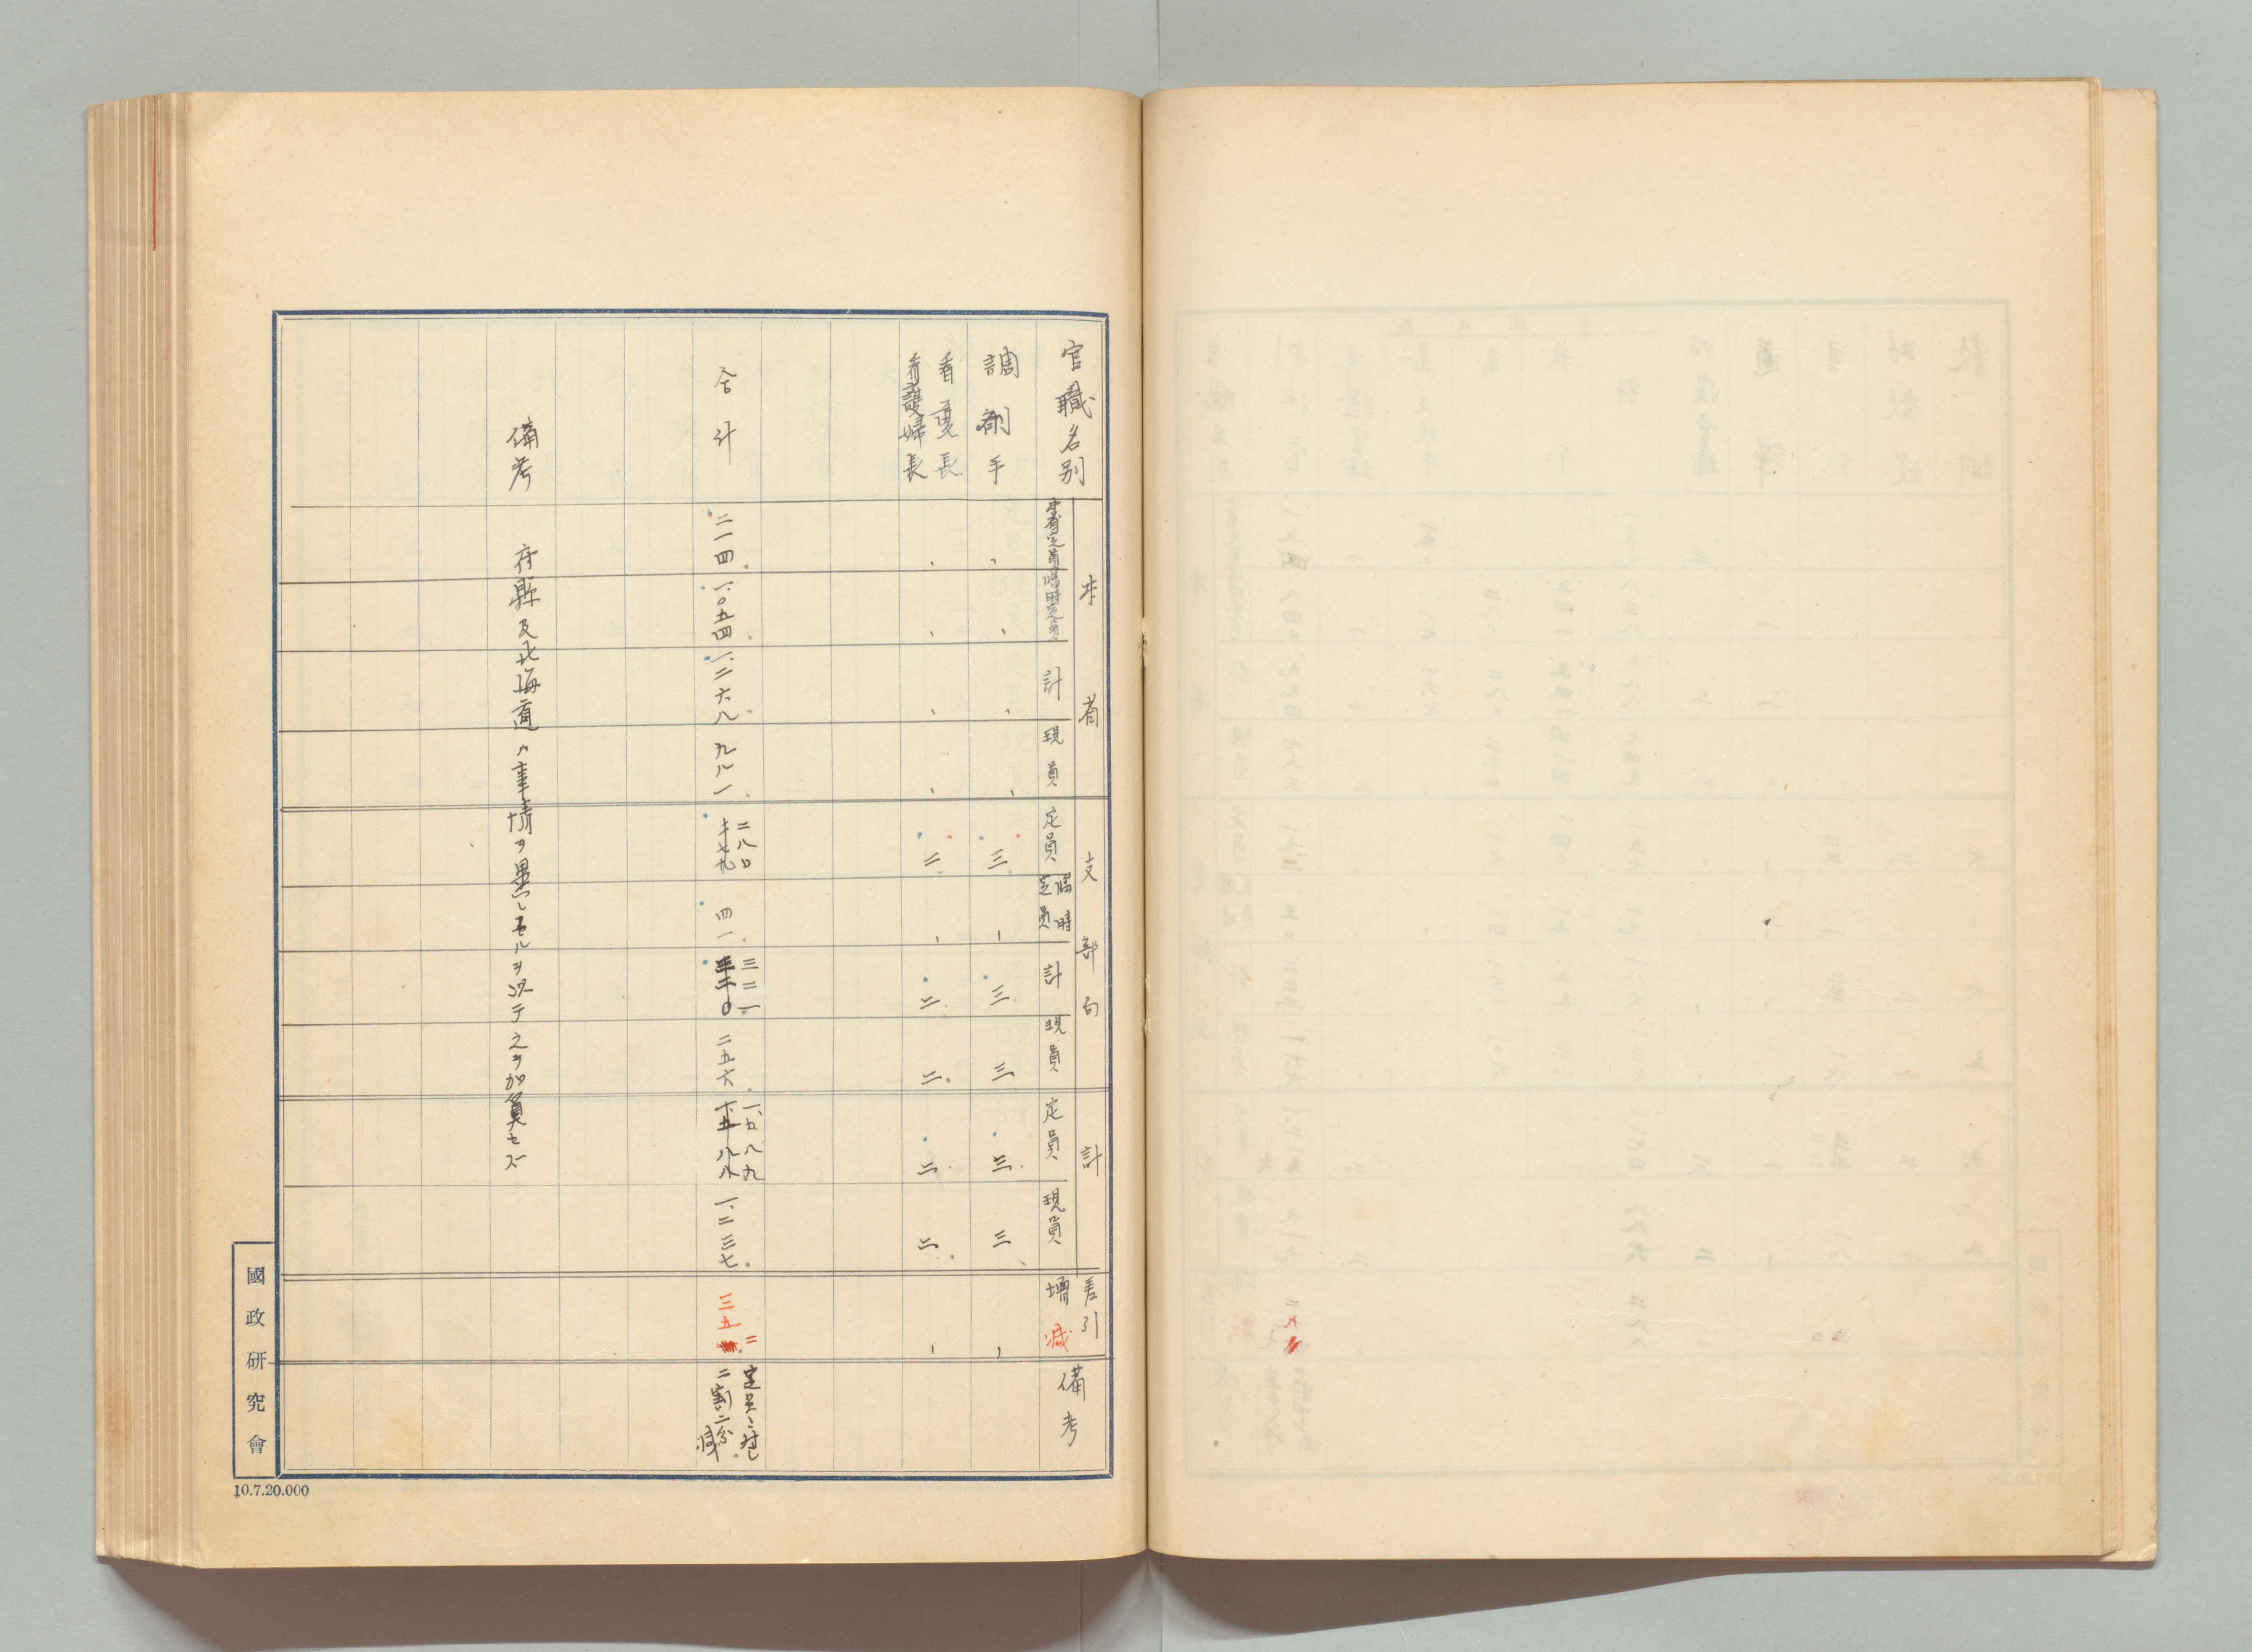 官職名別
本省
本省定員
臨時定員
計
現員
支部局
定員
臨時定員
計
現員
計
定員
現員
差引
増減
備考
調剤手
、
、
、
、
三
、
三
三
三
三
、
看護長
看護婦長
、
、
、
、
二
、
二
二
二
二
、
合計
二一四
一、〇五四
一、二六八
九八一
二八〇
四一
三二一
二五六
一、五八九
一、二三七
三五二
定員ニ対シ
二割二分減
備考
府縣及北海道ハ事情ヲ異ニセルヲ以テ之ヲ加算セズ
國政研究會
10.7.20.000